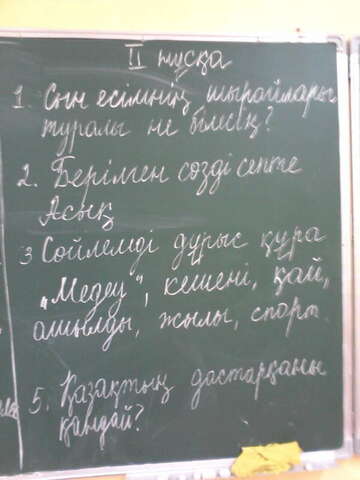 II нұсқа
1. Сын есімнің шырайлары
туралы не білесің?
2. Берілген сөзді септе
Асық
3 Сөйлемді дұрыс құра
„Медеу", кешені, қай,
ашылды, жылы, спорт.
5. Қазақтың дастарқаны
қандай?